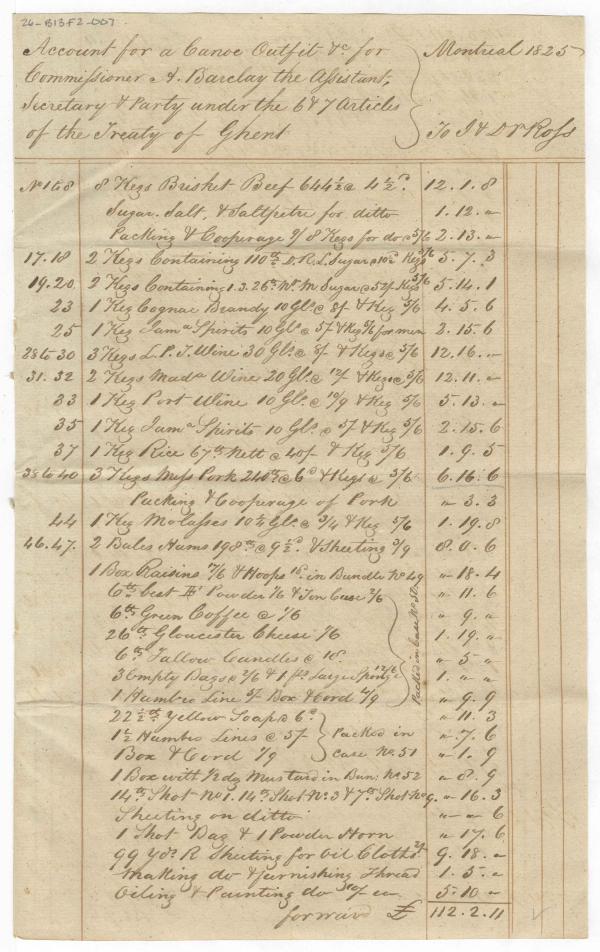 24-B13F2-007
Account for a Canoe Outfit &c for
Commissioner A. Barclay the Assistant,
Secretary & Party under the 6 & 7 Articles
of the Treaty of Ghent
Montreal 1825
To J & D Ross
No 1 to 8 8 Kegs Brisket Beef 644½ @ 4½d. 12.1.8
Sugar. Salt, & Saltpetre for ditto 1.12.〃
Packing & Cooperage of 8 Kegs for do @ 5/6 2.13.〃
17.18 2 Kegs Containing 110 lb D. R. L. Sugar @ 10d Kegs 5/6 5.7.3
19.20 2 Kegs Containing 1.3.26 lb Mo. Sugar @ 52/ Kegs 5/6 5.14.1
23 1 Keg Cognac Brandy 10 Gls @ 8/ & Keg 5/6 4.5.6
25 1 Keg Jama Spirits 10 Gls @ 5/ & Keg 5/6 for men 2.15.6
28 to 30 3 Kegs L. P. T. Wine 30 Gls @ 8/ & Kegs @ 5/6 12.16.〃
31.32 2 Kegs Mada Wine 20 Gls @ 12/ & Kegs @ 5/6 12.11.〃
33 1 Keg Port Wine 10 Gls @ 10/9 & Keg 5/6 5.13.〃
35 1 Keg Jama Spirits 10 Gls @ 5/ & Keg 5/6 2.15.6
37 1 Keg Rice 67 lb Nett @ 40/ & Keg 5/6 1.9.5
38 to 40 3 Kegs Mess Pork 240 lb @ 6d & Kegs @ 5/6 6.16.6
Packing & Cooperage of Pork 〃 3.3
44 1 Keg Molasses 10¼ Gls @ 3/4 & Keg 5/6 1.19.8
46.47. 2 Bales Hams 198 lb @ 9½d. & Sheeting 3/9 8.0.6
1 Box Raisins & Hoops in Bundle No 49 〃 18.4
6 lb best Powder 1/6 & Tin Case 2/6 〃 11.6
6 lb Green Coffee @ 1/6 〃 9.〃
26 lb Gloucester Cheese 1/6 1.19.〃
6 lb Tallow Candles @ 10d. 〃 5 〃
3 Empty Bags @ 2/6 & 1 Large Sponge 12/6 1.〃.〃
1 Hambro Line 5/ Box & Cord 4/9 〃 9.9
Packed in Case No 50
22½ lb Yellow Soap @ 6d 〃 11.3
1½ Hambro Lines @ 5/ 〃.7.6
Box & Cord 1/9 〃 1.9
Packed in
Case No. 51
1 Box with Mustard in Bun: No. 52 〃 8.9
14 lb Shot No 1. 14 lb Shot No. 3 & 7 lb Shot No 9. 〃 16.3
Sheeting on ditto 〃 〃 6
1 Shot Bag & 1 Powder Horn 〃 17.6
99 Yds R Sheeting for Oil Cloths 2/ 9.18.〃
Making do & furnishing Thread 1.5.〃
Oiling & Painting do 10/ ea 5.10 〃
forward £ 112.2.11